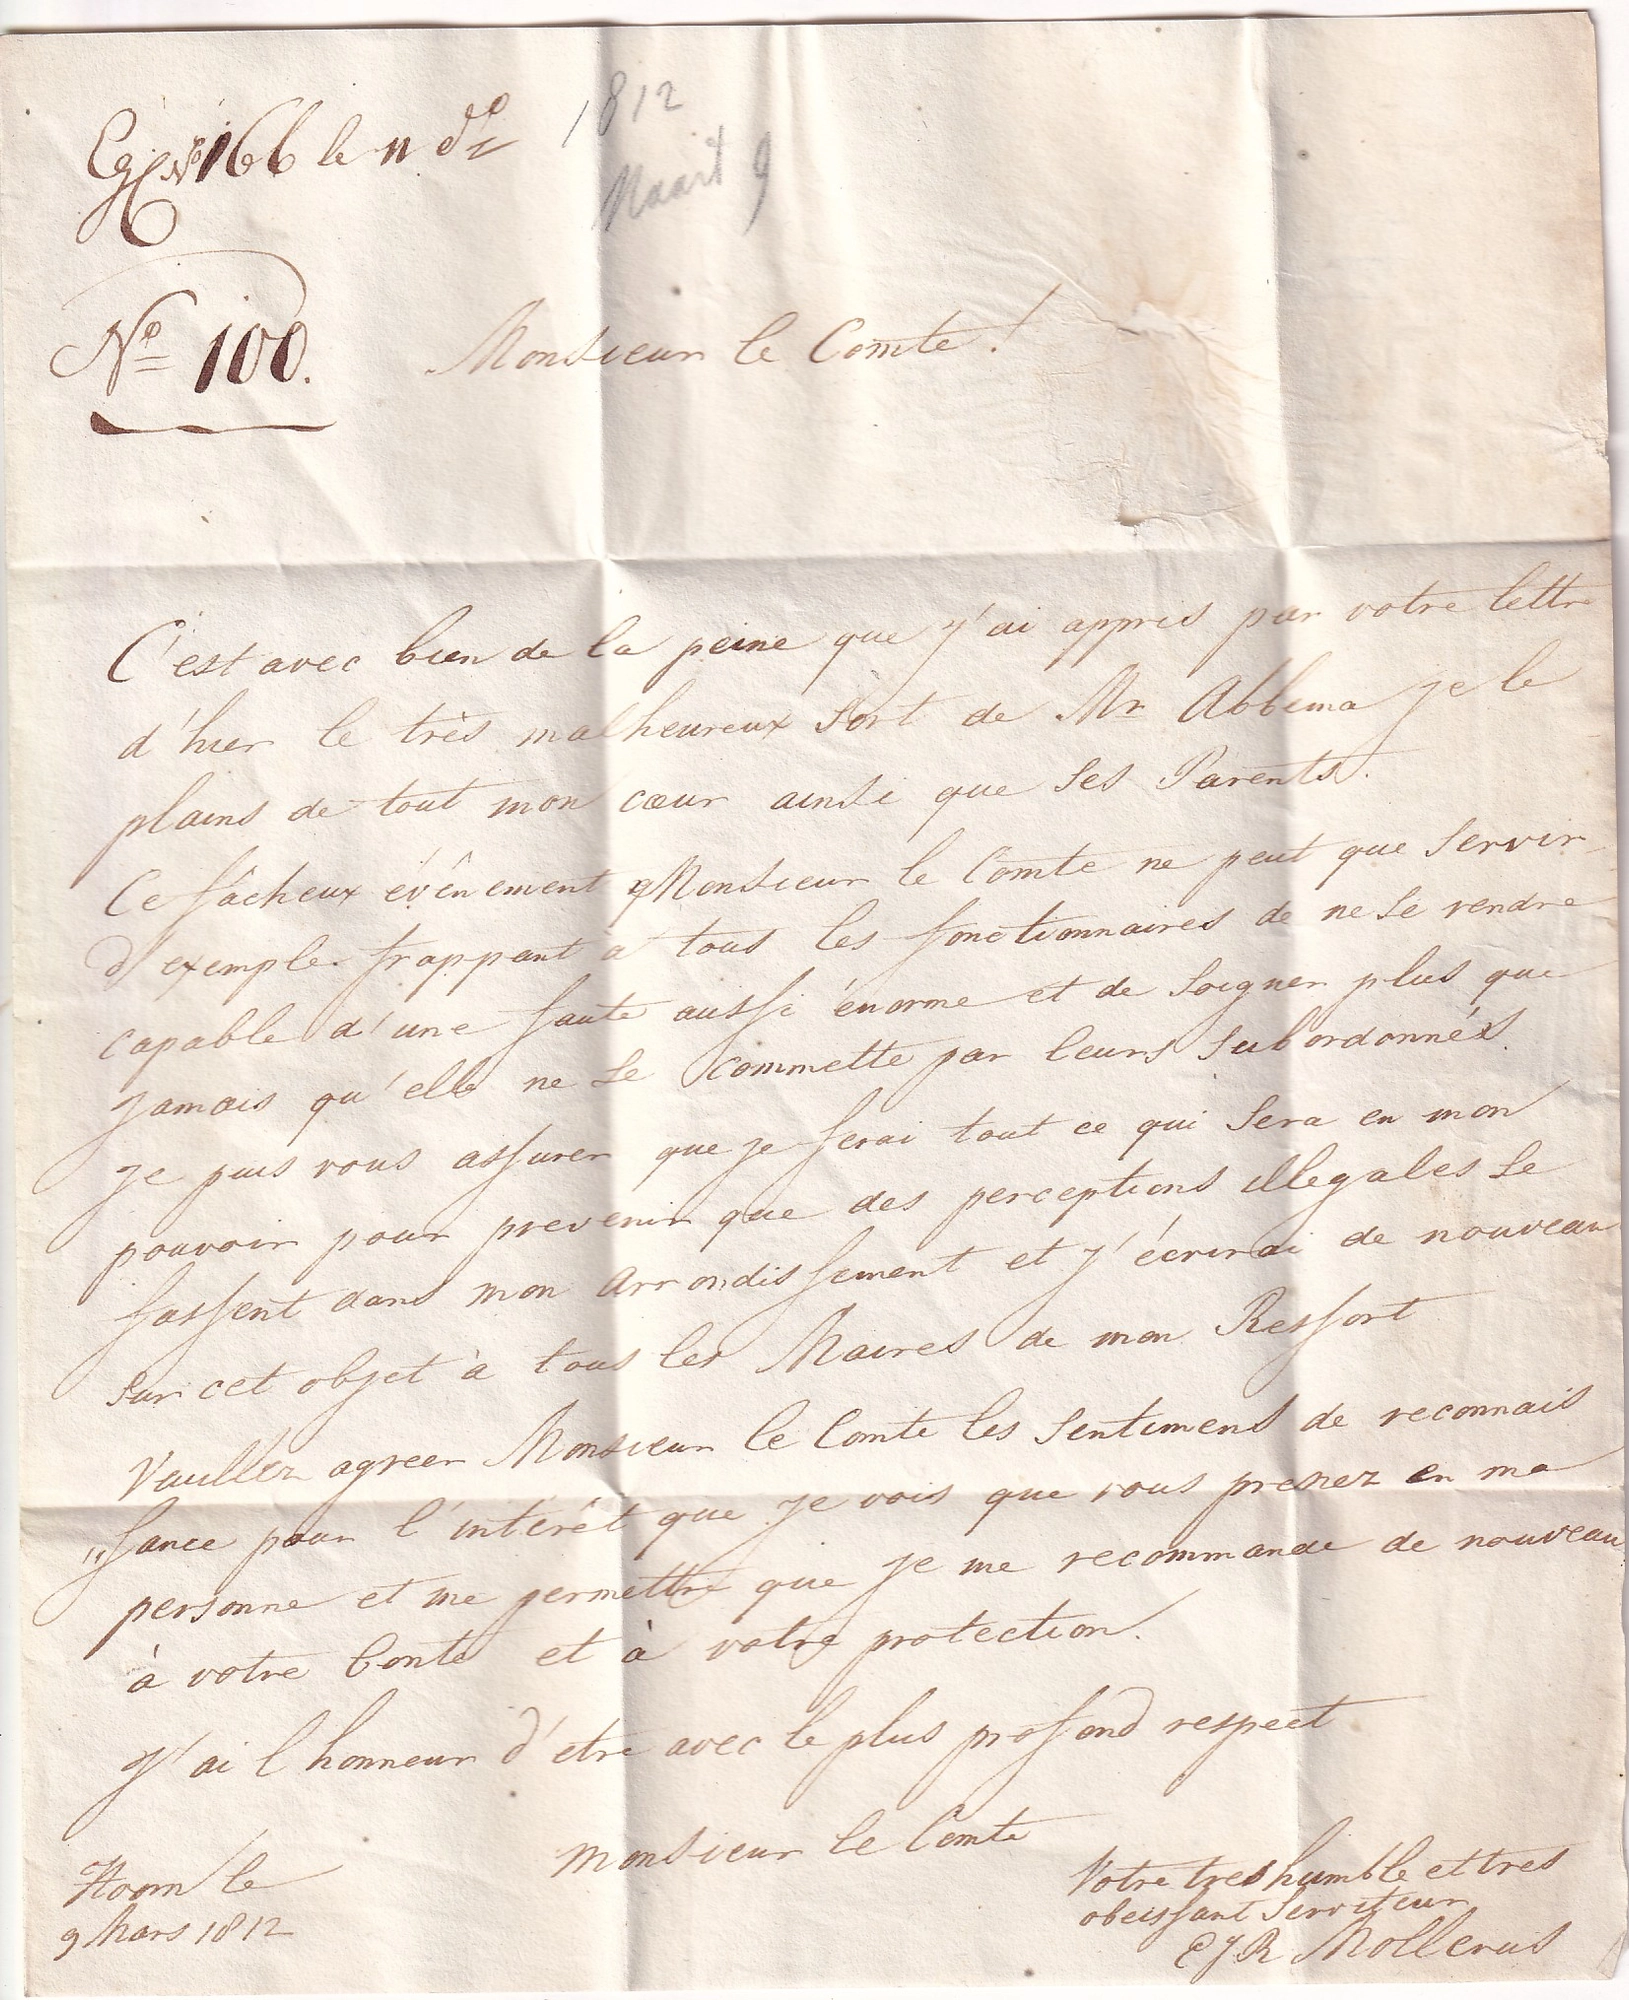 No 166 le 11 do
1812
Maart 9
No 100.
Monsieur le Comte!
C'est avec bien de la peine que j'ai appris par votre lettre
d'hier le très malheureux sort de Mr Abbema je le
plains de tout mon cœur ainsi que ses Parents.
Ce fâcheux evênement Monsieur le Comte ne peut que servir
d'exemple frappant à tous les fonctionnaires de ne se rendre
capable d'une faute aussi énorme et de soigner plus que
jamais qu'elle ne se commette par leurs subordonnés.
Je puis vous assurer que je ferai tout ce qui sera en mon
pouvoir pour prevenir que des perceptions illegales se
fassent dans mon arrondissement et j'écrirai de nouveau
sur cet objet à tous les Maires de mon Ressort
Veuillez agreer Monsieur le Comte les sentimens de reconnais
"sance pour l'intérêt que je vois que vous prenez en ma
personne et me permettre que je me recommande de nouveau
à votre bonté et à votre protection.
J'ai l honneur d'etre avec le plus profond respect
Monsieur le Comte
Hoorn le
9 Mars 1812
Votre tres humble et tres
obeissant Serviteur
EJR Mollerus